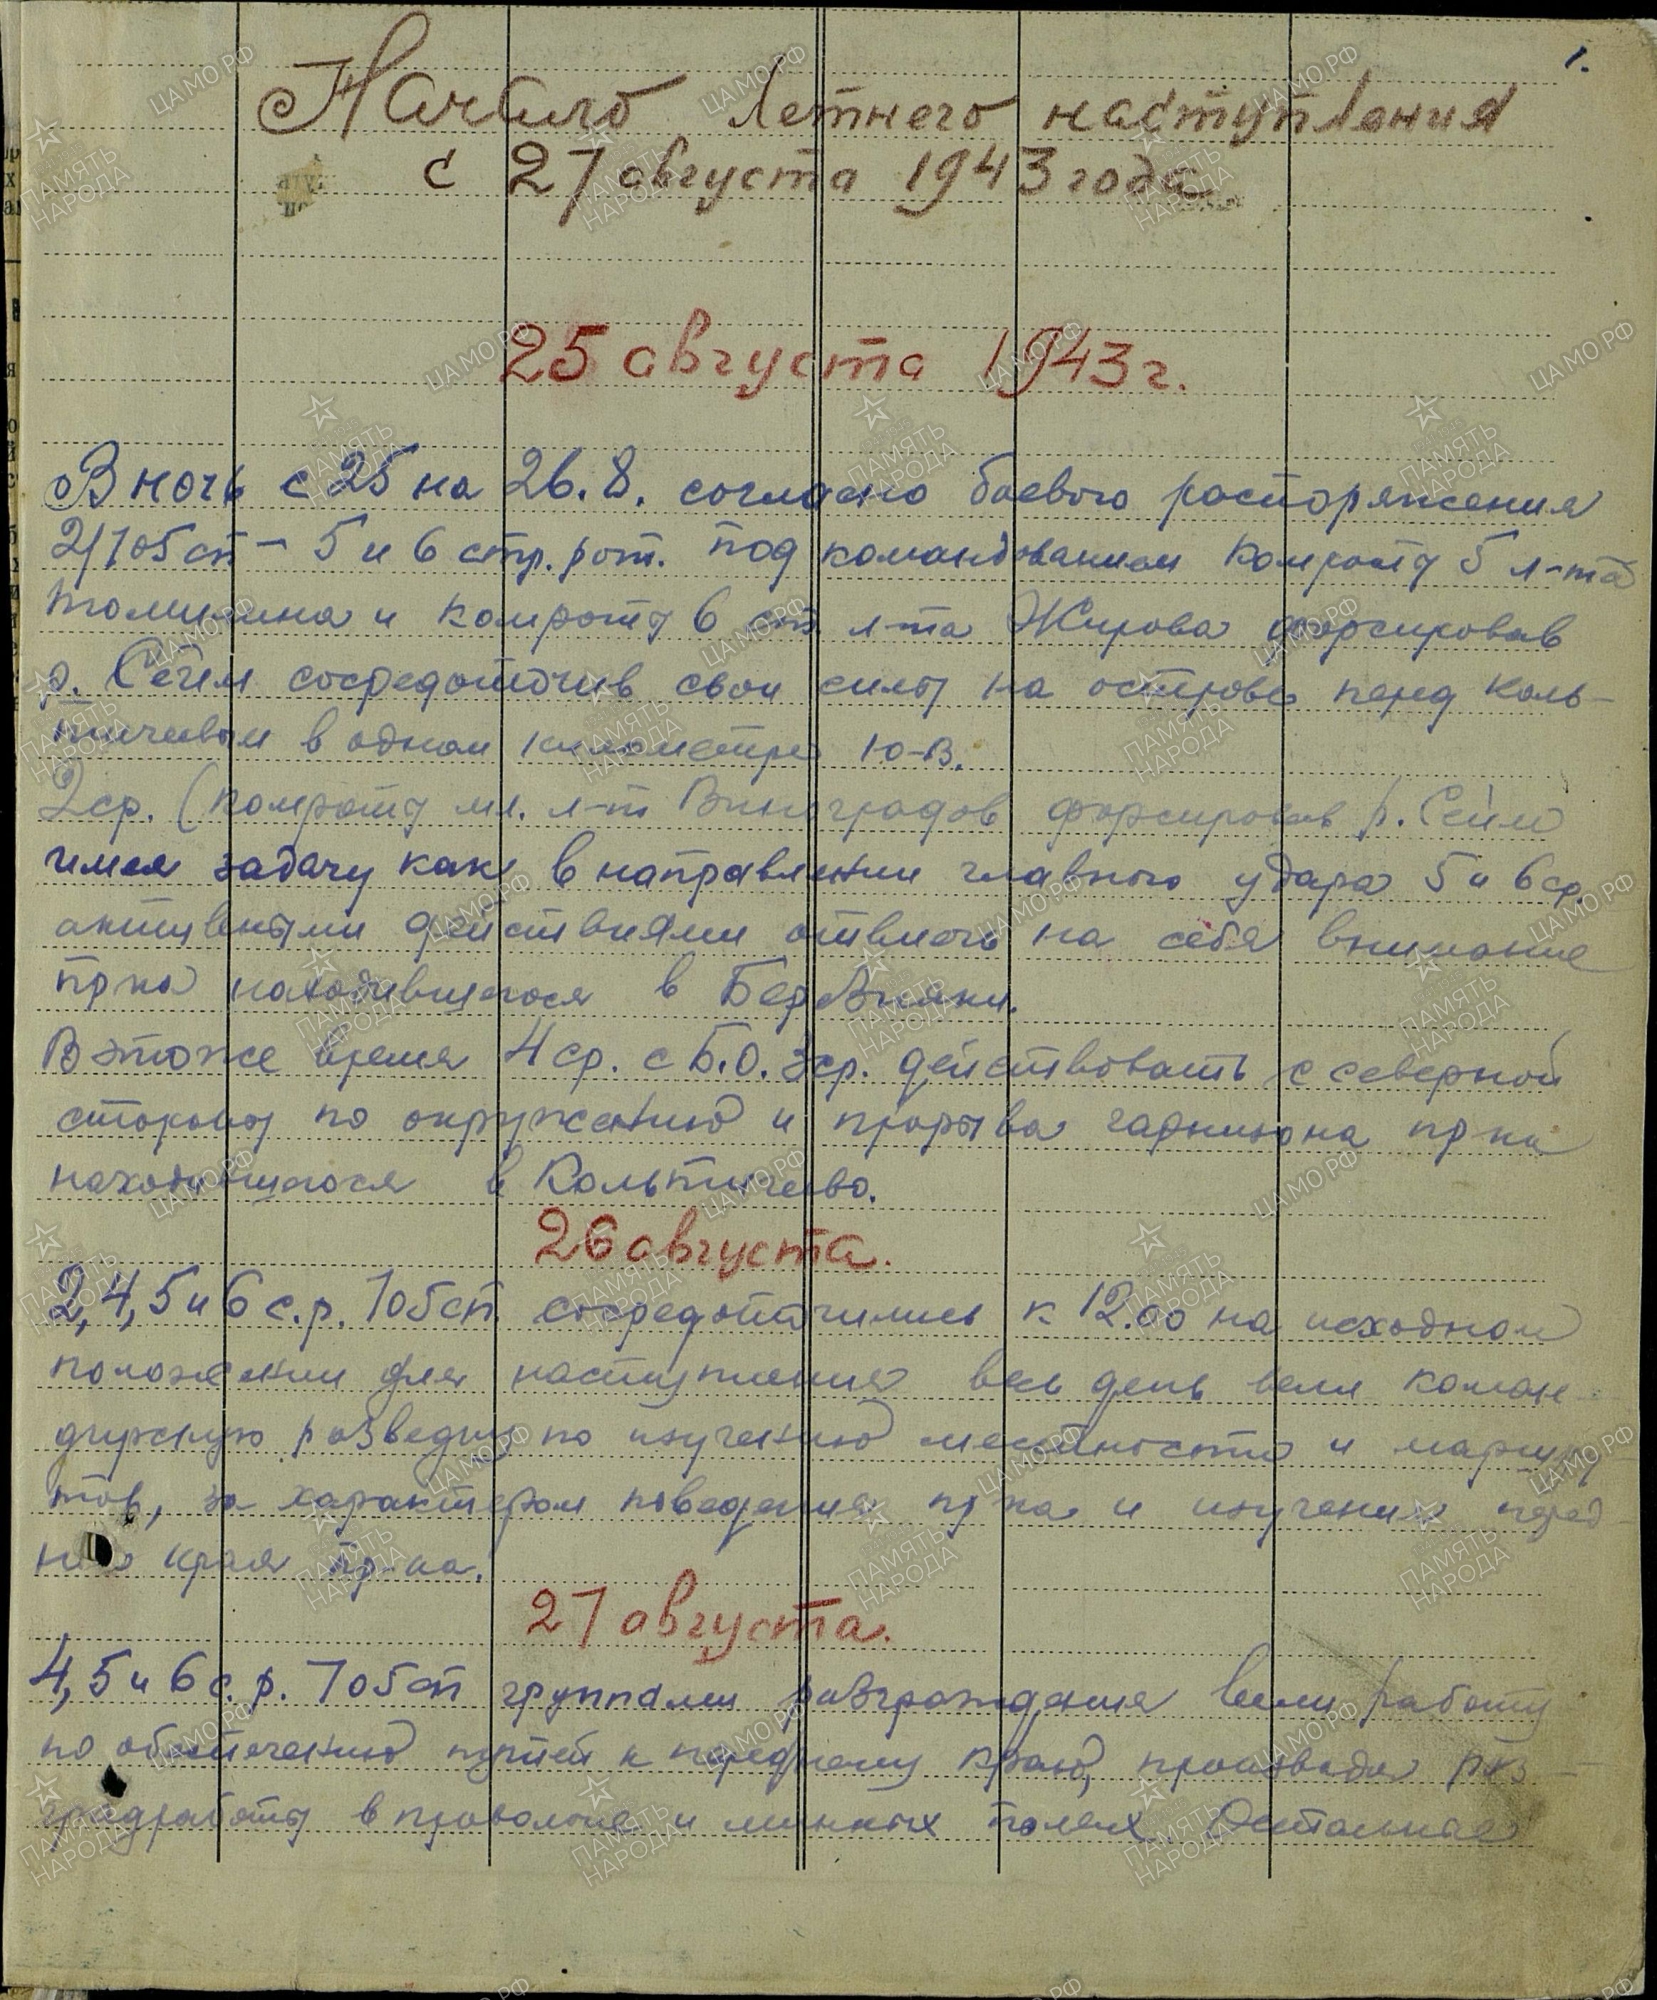 1.
Начало летнего наступления
с 27 августа 1943 года
25 августа 1943 г.
В ночь с 25 на 26.8. согласно боевого распоряжения
2/705 сп – 5 и 6 стр. рот. под командованием комроты 5 л-та
и комроты 6 ст. л-та Жирова форсировав
р. Сейм сосредоточив свои силы на острове перед Коль-
тичевым в одном километре Ю-В.
2 ср. (комроты мл. л-т Виноградов форсировав р. Сейм
имея задачу как в направлении главного удара 5 и 6 ср.
активными действиями отвлечь на себя внимание
пр-ка находившегося в
В этоже время 4 ср. с Б.О. 3 ср. действовать с северной
стороны по окружению и прорыва гарнизона пр-ка
находившегося в Кольтичево.
26 августа.
2, 4, 5 и 6 с.р. 705 сп. сосредоточились к 12.00 на исходном
положении для наступления весь день вели коман-
дирскую разведку по изучению местности и маршру-
тов, за характером поведения пр-ка и изучения перед-
него края пр-ка.
27 августа.
4, 5 и 6 с. р. 705 сп группами разграждения вели работу
по обеспечению путей к переднему краю, производя раз-
градработы в проволоке и минных полях. Остальные